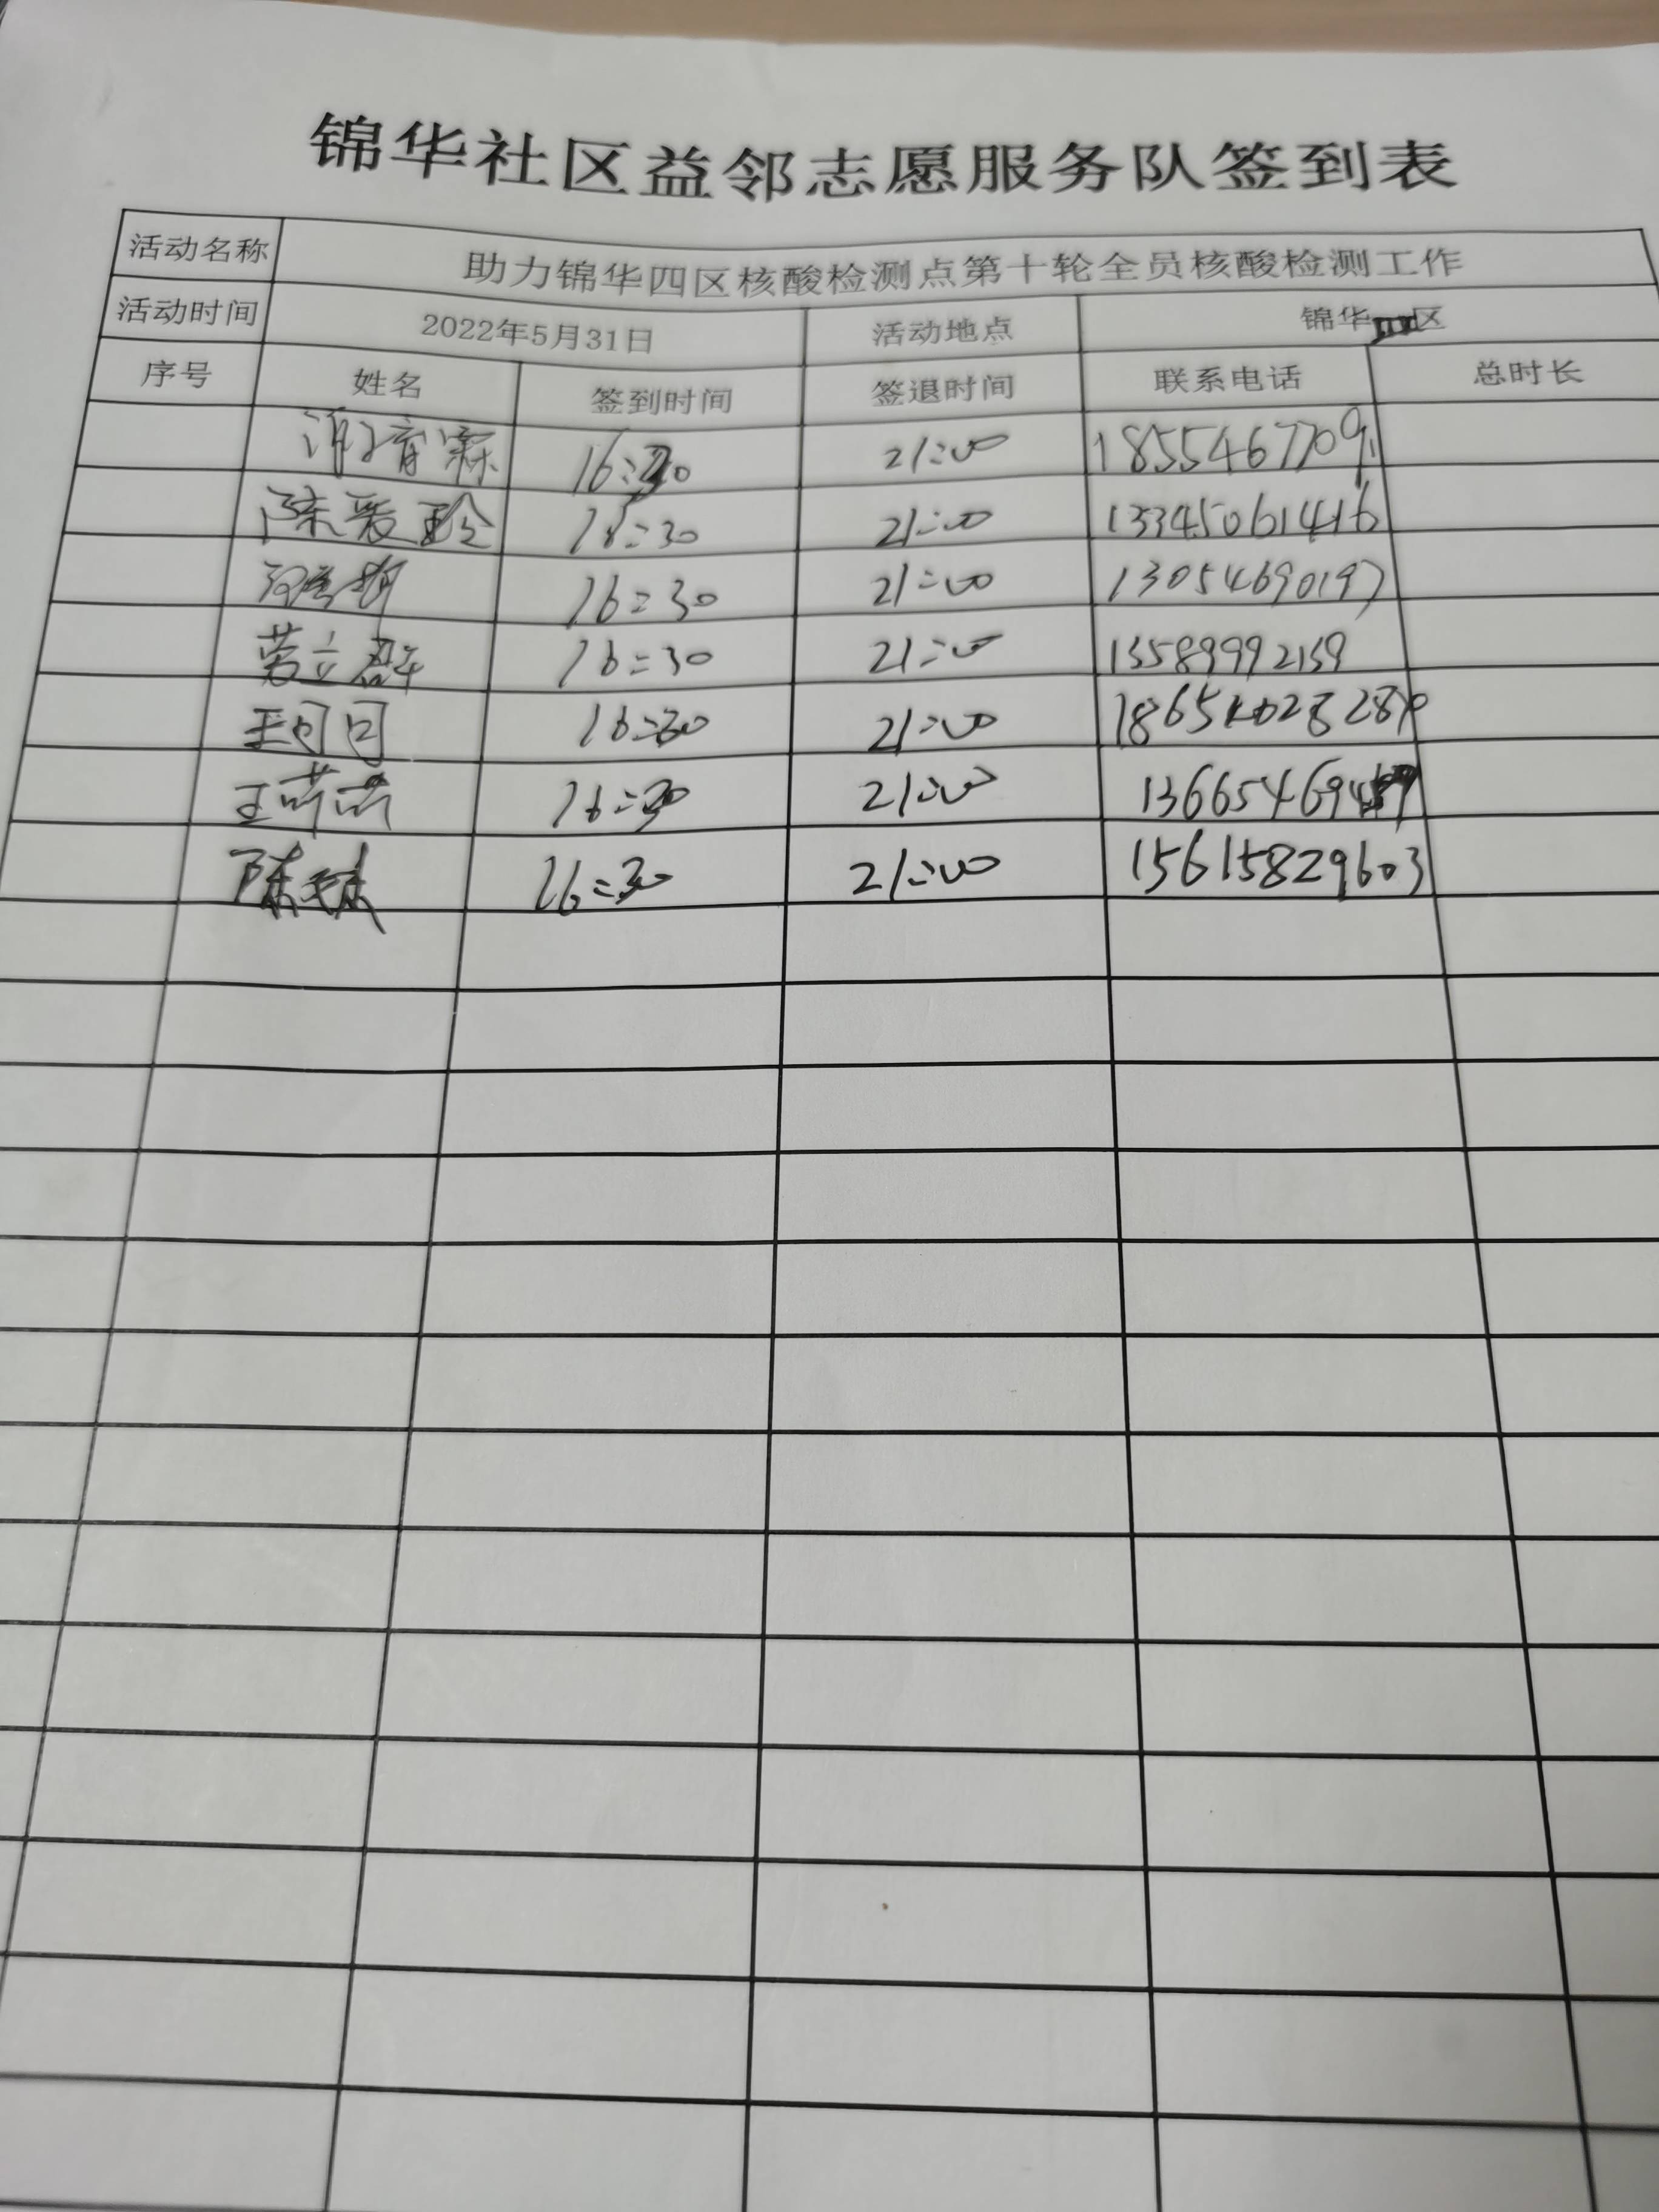 锦华社区益邻志愿服务队签到表
活动名称 助力锦华四区核酸检测点第十轮全员核酸检测工作
活动时间 2022年5月31日 活动地点 锦华 区
序号 姓名 签到时间 签退时间 联系电话 总时长
16:30 21:00
陈爱玲 16:30 21:00 13345061416
16:30 21:00 13054690197
劳立群 16:30 21:00 13589992159
王可可 16:30 21:00
王 16:30 21:00
陈 16:30 21:00 15615829603